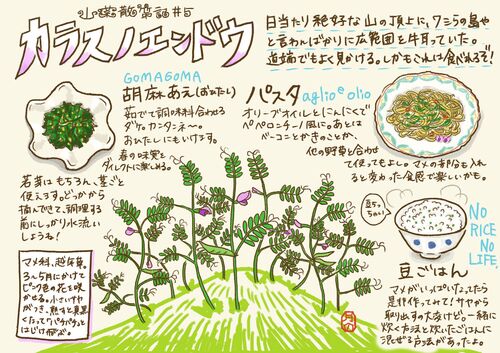 山菜散策誌#5
カラスノエンドウ
日当たり絶好な山の頂上に、ワシらの島や
と言わんばかりに広範囲を牛耳っていた。
道端でもよく見かける。しかもこれは食べれるぞ!
GOMAGOMA
胡麻あえ(おひたし)
茹でて調味料合わせる
ダケ。カンタンネ〜。
おひたしにもいけます。
春の味覚を
ダイレクトに楽しめる。
若芽はもちろん、茎ごと
使えます。どっかから
摘んできて、調理する
前にしっかり水洗い
しようね!
パスタ aglio e olio
オリーブオイルとにんにくで
ペペロンチーノ風に。あとは
ベーコンとかきのことか、
他の野草と合わせ
て使ってもよし。マメの部分を入れ
ると変わった食感で楽しいかも。
豆ごはん
NO
RICE
NO
LIFE.
マメがいっぱいとれたら
是非作ってみて!サヤから
取り出すの大変けど…一緒に
炊く方法と炊いたごはんに
混ぜる方法があったよ。
マメ科、越年草
3〜5月にかけて
ピンク色の花を咲
かせる。小さいサヤ
がつき、熟すと真黒
くなって"パチパチッ"と
はじけ飛ぶ。